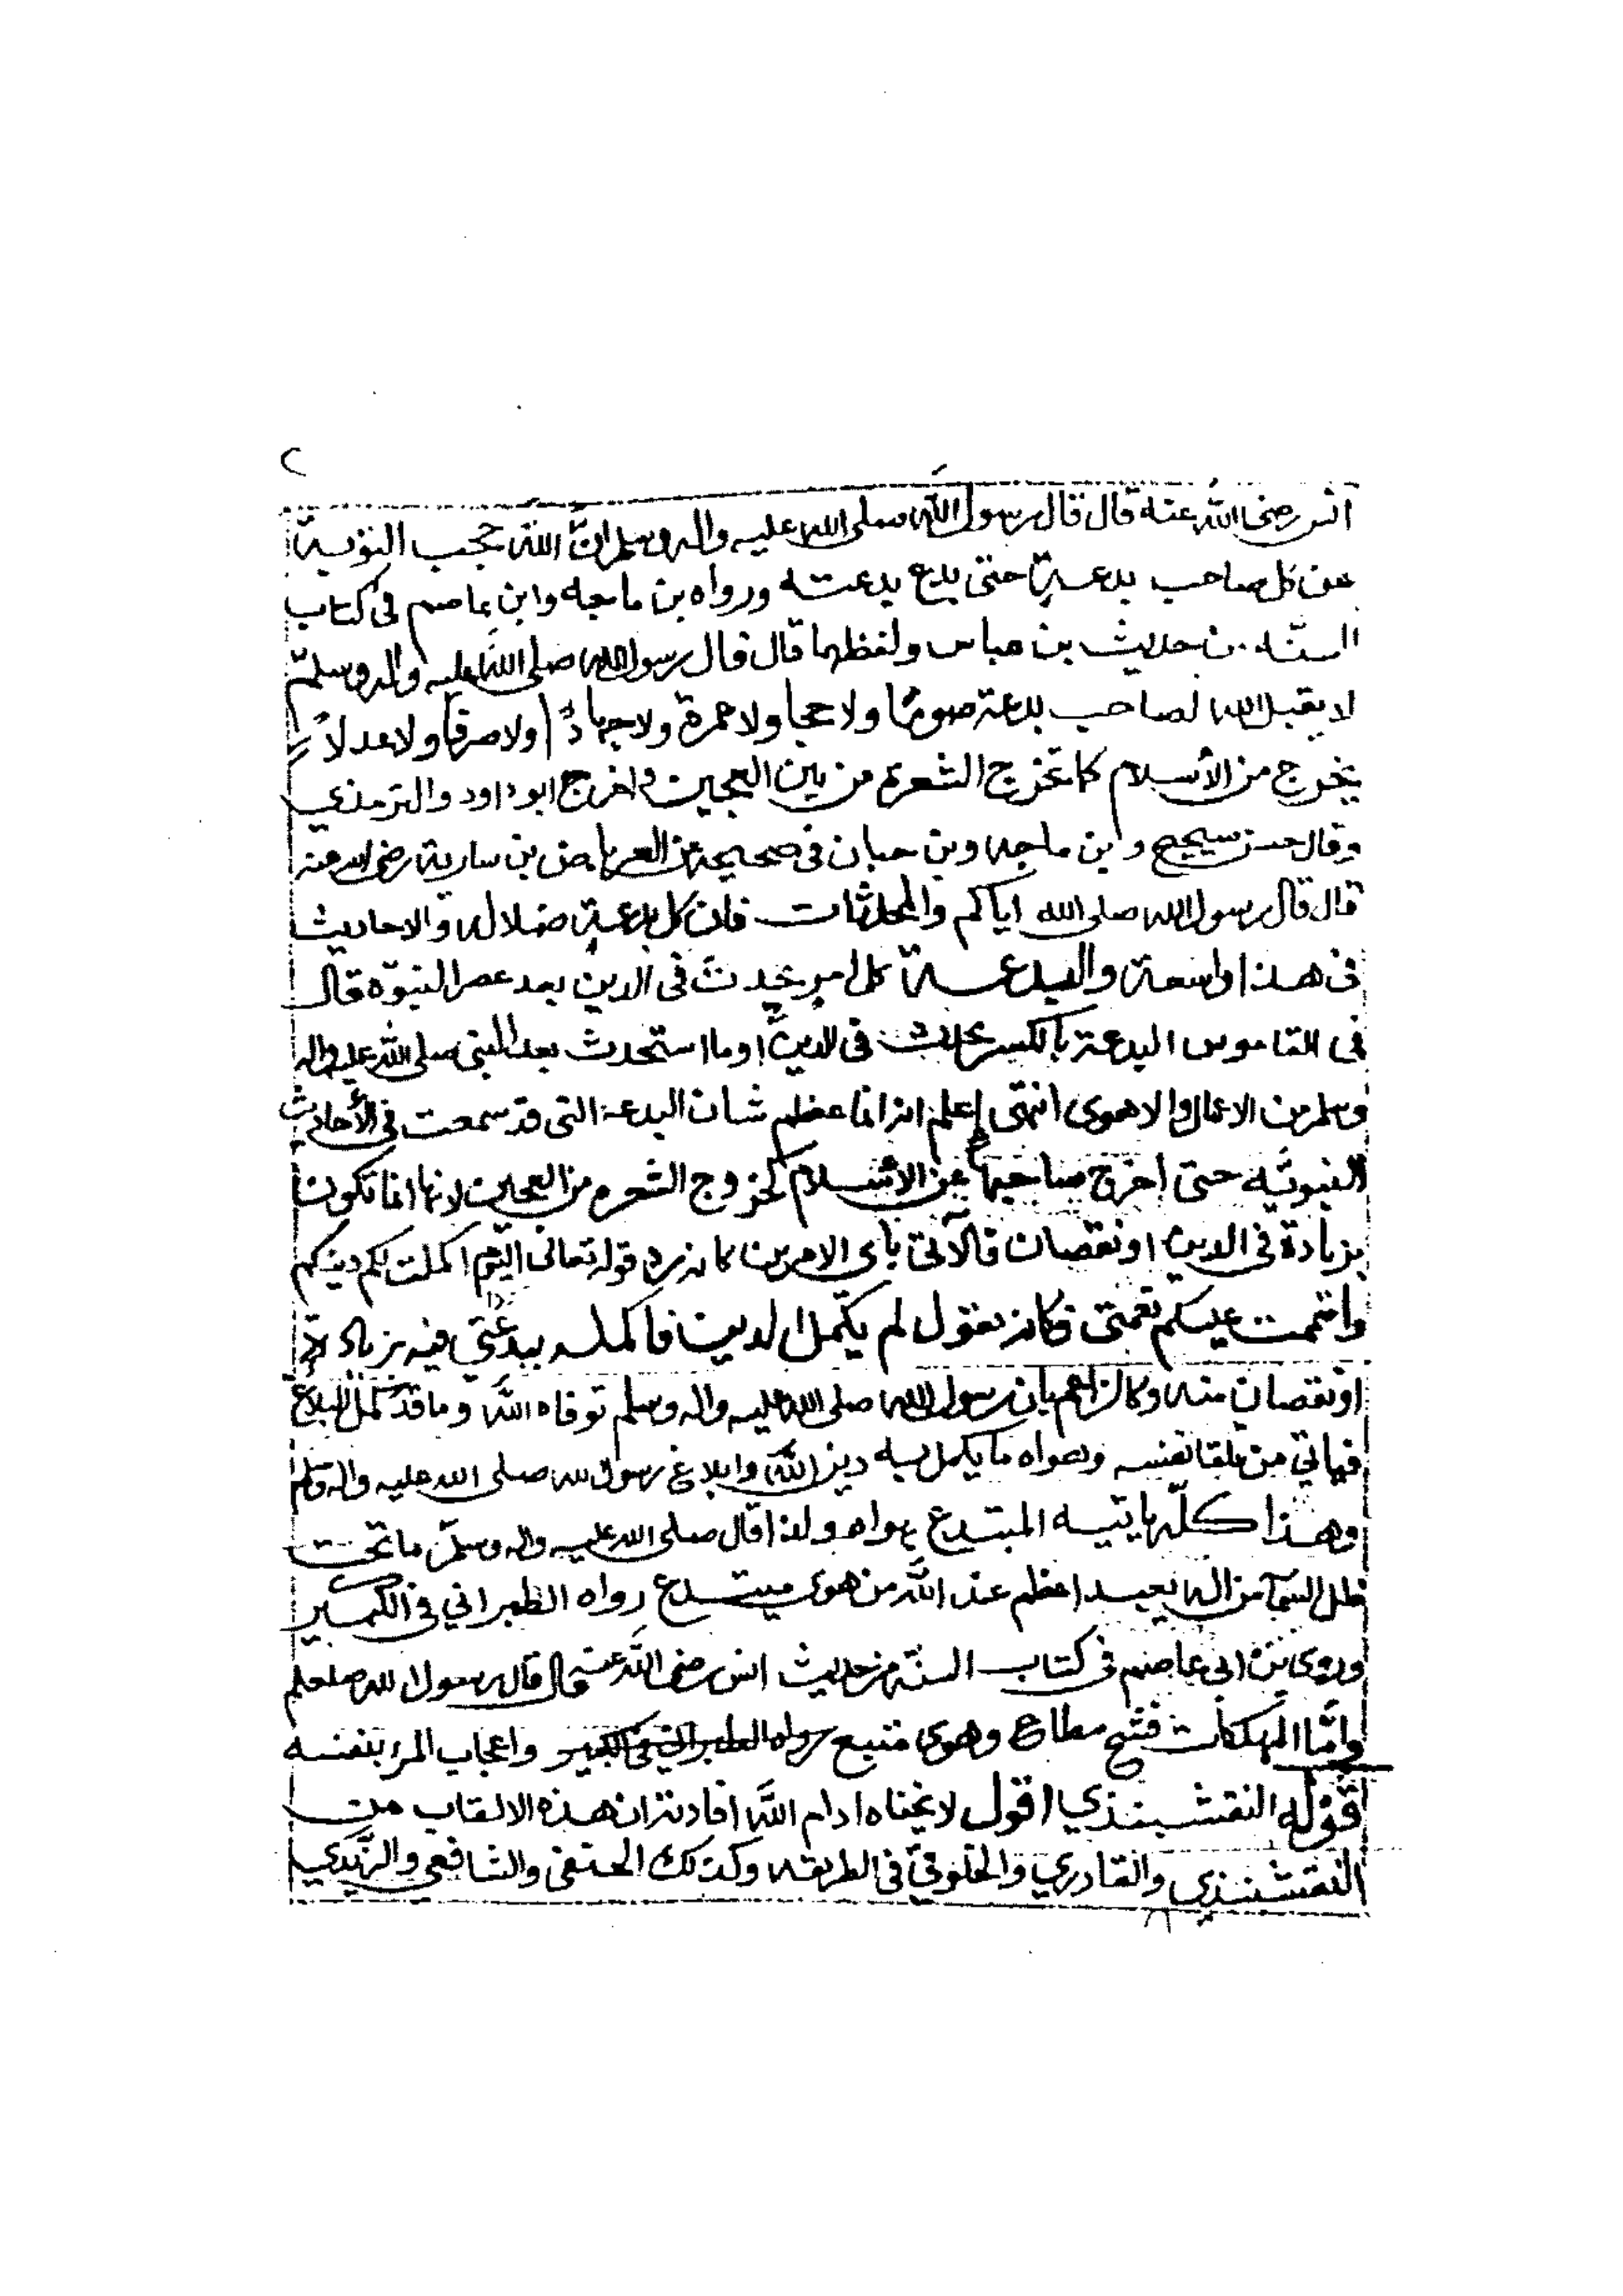 ٢
انس رضي الله عنه قال قال رسول الله صلى الله عليه واله وسلم ان الله حجب التوبة
عن كل صاحب بدعة حتى يدع بدعته ورواه بن ماجه وابن عاصم في كتاب
السنه من حديث بن عباس ولفظهما قال قال رسول الله صلى الله عليه واله وسلم
لا يقبل الله لصاحب بدعة صومًا ولا حجا ولا عمرة ولا جهادًا ولا صرفا ولا عدلاً
يخرج من الأسلام كما تخرج الشعرة من بين العجين واخرج ابو داود والترمذي
وقال حسن صحيح وابن ماجه وبن حبان في صحيحه عن العرباض بن سارية رضي الله عنه
قال قال رسول الله صلى الله اياكم والمحدثات فان كل بدعة ضلاله والاحاديث
في هذا واسعة والبدعـة كل امر يحدث في الدين بعد عصر النبوّة قال
في القاموس البدعة بالكسر الحدث في الدين او ما استحدث بعد النبي صلى الله عليه واله
وسلم من الاعمال والاهوى انتهى اعلم انه انما عظم شان البدعة التي قد سمعت في الأحاديث
النبويّه حتى اخرج صاحبها عن الأسلام كخروج الشعره من العجين لانها انما تكون
بزيادة في الدين او نقصان فالآتي باي الامرين كانه رد قوله تعالى اليوم اكملت لكم دينكم
واتممت عليكم نعمتي فكانه يقول لم يكمل الدين فاكمله ببدعتي فيه بزيادة
او نقصان منه وكالزاعم بان رسول الله صلى الله عليه واله وسلم توفاه الله وما قد كمل البلاغ
فياتي من تلقا نفسه وهواه ما يكمل به دين الله وابلاغ رسول الله صلى الله عليه واله وسلم
وهذا كلّه ياتيه المبتدع بهواه ولذا قال صلى الله عليه واله وسلم ما تحت
ظل السمآ من اله يعبد اعظم عند الله من هوى مبتدع رواه الطبراني في الكبير
وروى بن ابي عاصم في كتاب السنه من حديث انس رضي الله عنه قال قال رسول الله صلعلم
وامّا المهلكات فشح مطاع وهوى متبع رواه الطبراني في الكبير واعجاب المرء بنفسه
قوله النقشبندي اقول لا يخفاه ادام الله افادته ان هذه الالقاب من
النقشبندي والقادري والخلوتي في الطريقه وكذلك الحنفي والشافعي والزيدي